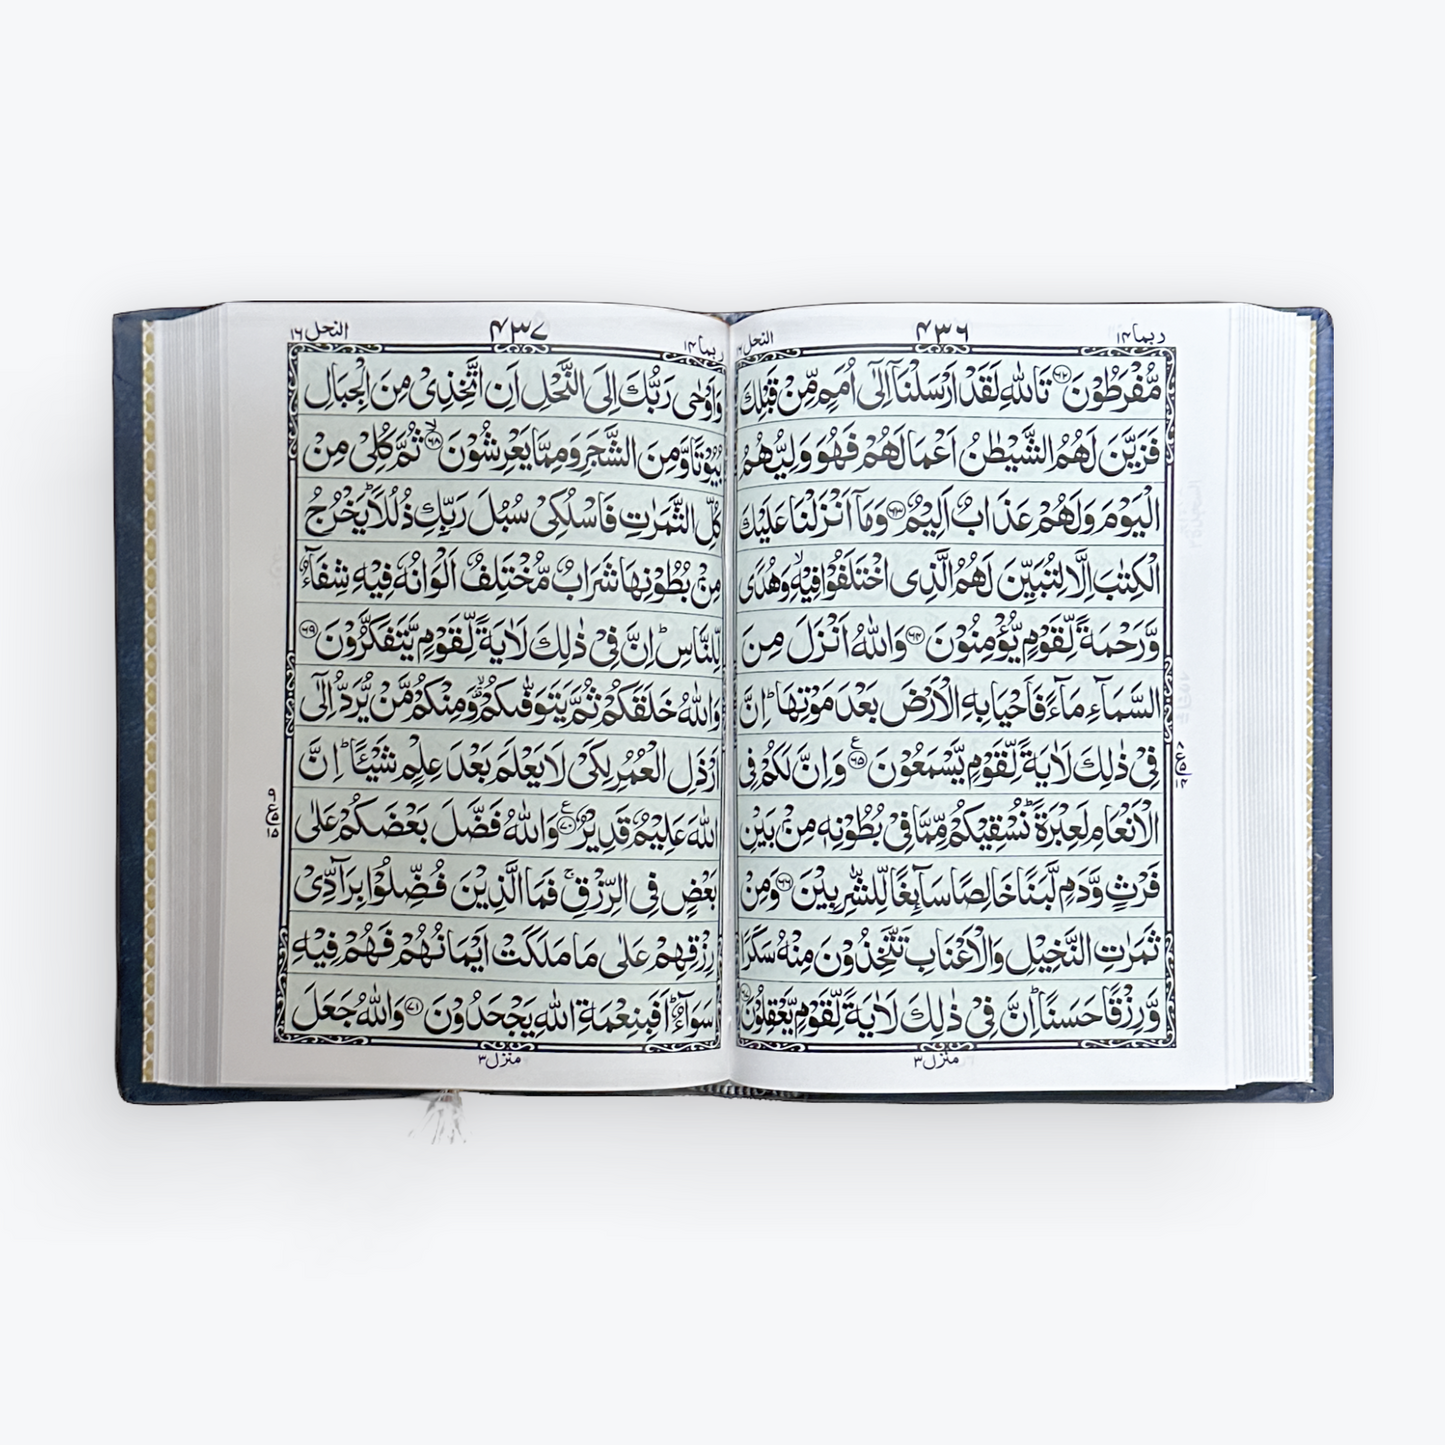 ربما ١٤
٤٣٦
النحل ١٦
مُّفْرَطُوْنَ ﴿۶۲﴾ تَاللّٰهِ لَقَدْ اَرْسَلْنَاۤ اِلٰۤى اُمَمٍ مِّنْ قَبْلِكَ
فَزَيَّنَ لَهُمُ الشَّيْطٰنُ اَعْمَالَهُمْ فَهُوَ وَلِيُّهُمُ
الْيَوْمَ وَلَهُمْ عَذَابٌ اَلِيْمٌ ﴿۶۳﴾ وَمَاۤ اَنْزَلْنَا عَلَيْكَ
الْكِتٰبَ اِلَّا لِتُبَيِّنَ لَهُمُ الَّذِى اخْتَلَفُوْا فِيْهِ ۙ وَهُدًى
وَّرَحْمَةً لِّقَوْمٍ يُّؤْمِنُوْنَ ﴿۶۴﴾ وَاللّٰهُ اَنْزَلَ مِنَ
السَّمَآءِ مَآءً فَاَحْيَا بِهِ الْاَرْضَ بَعْدَ مَوْتِهَا ؕ اِنَّ
فِيْ ذٰلِكَ لَاٰيَةً لِّقَوْمٍ يَّسْمَعُوْنَ ﴿۶۵﴾ ع وَاِنَّ لَكُمْ فِى
الْاَنْعَامِ لَعِبْرَةً ؕ نُسْقِيْكُمْ مِّمَّا فِيْ بُطُوْنِهٖ مِنْۢ بَيْنِ
فَرْثٍ وَّدَمٍ لَّبَنًا خَالِصًا سَآئِغًا لِّلشّٰرِبِيْنَ ﴿۶۶﴾ وَمِنْ
ثَمَرٰتِ النَّخِيْلِ وَالْاَعْنَابِ تَتَّخِذُوْنَ مِنْهُ سَكَرًا
وَّرِزْقًا حَسَنًا ؕ اِنَّ فِيْ ذٰلِكَ لَاٰيَةً لِّقَوْمٍ يَّعْقِلُوْنَ ﴿۶۷﴾
منزل ٣
ربما ١٤
٤٣٧
النحل ١٦
وَاَوْحٰى رَبُّكَ اِلَى النَّحْلِ اَنِ اتَّخِذِيْ مِنَ الْجِبَالِ
بُيُوْتًا وَّمِنَ الشَّجَرِ وَمِمَّا يَعْرِشُوْنَ ﴿۶۸﴾ ۙ ثُمَّ كُلِيْ مِنْ
كُلِّ الثَّمَرٰتِ فَاسْلُكِيْ سُبُلَ رَبِّكِ ذُلُلًا ؕ يَخْرُجُ
مِنْۢ بُطُوْنِهَا شَرَابٌ مُّخْتَلِفٌ اَلْوَانُهٗ فِيْهِ شِفَآءٌ
لِّلنَّاسِ ؕ اِنَّ فِيْ ذٰلِكَ لَاٰيَةً لِّقَوْمٍ يَّتَفَكَّرُوْنَ ﴿۶۹﴾
وَاللّٰهُ خَلَقَكُمْ ثُمَّ يَتَوَفّٰىكُمْ ۙ وَمِنْكُمْ مَّنْ يُّرَدُّ اِلٰۤى
اَرْذَلِ الْعُمُرِ لِكَيْ لَا يَعْلَمَ بَعْدَ عِلْمٍ شَيْئًا ؕ اِنَّ
اللّٰهَ عَلِيْمٌ قَدِيْرٌ ﴿۷۰﴾ ع وَاللّٰهُ فَضَّلَ بَعْضَكُمْ عَلٰى
بَعْضٍ فِى الرِّزْقِ ۚ فَمَا الَّذِيْنَ فُضِّلُوْا بِرَآدِّيْ
رِزْقِهِمْ عَلٰى مَا مَلَكَتْ اَيْمَانُهُمْ فَهُمْ فِيْهِ
سَوَآءٌ ؕ اَفَبِنِعْمَةِ اللّٰهِ يَجْحَدُوْنَ ﴿۷۱﴾ وَاللّٰهُ جَعَلَ
منزل ٣